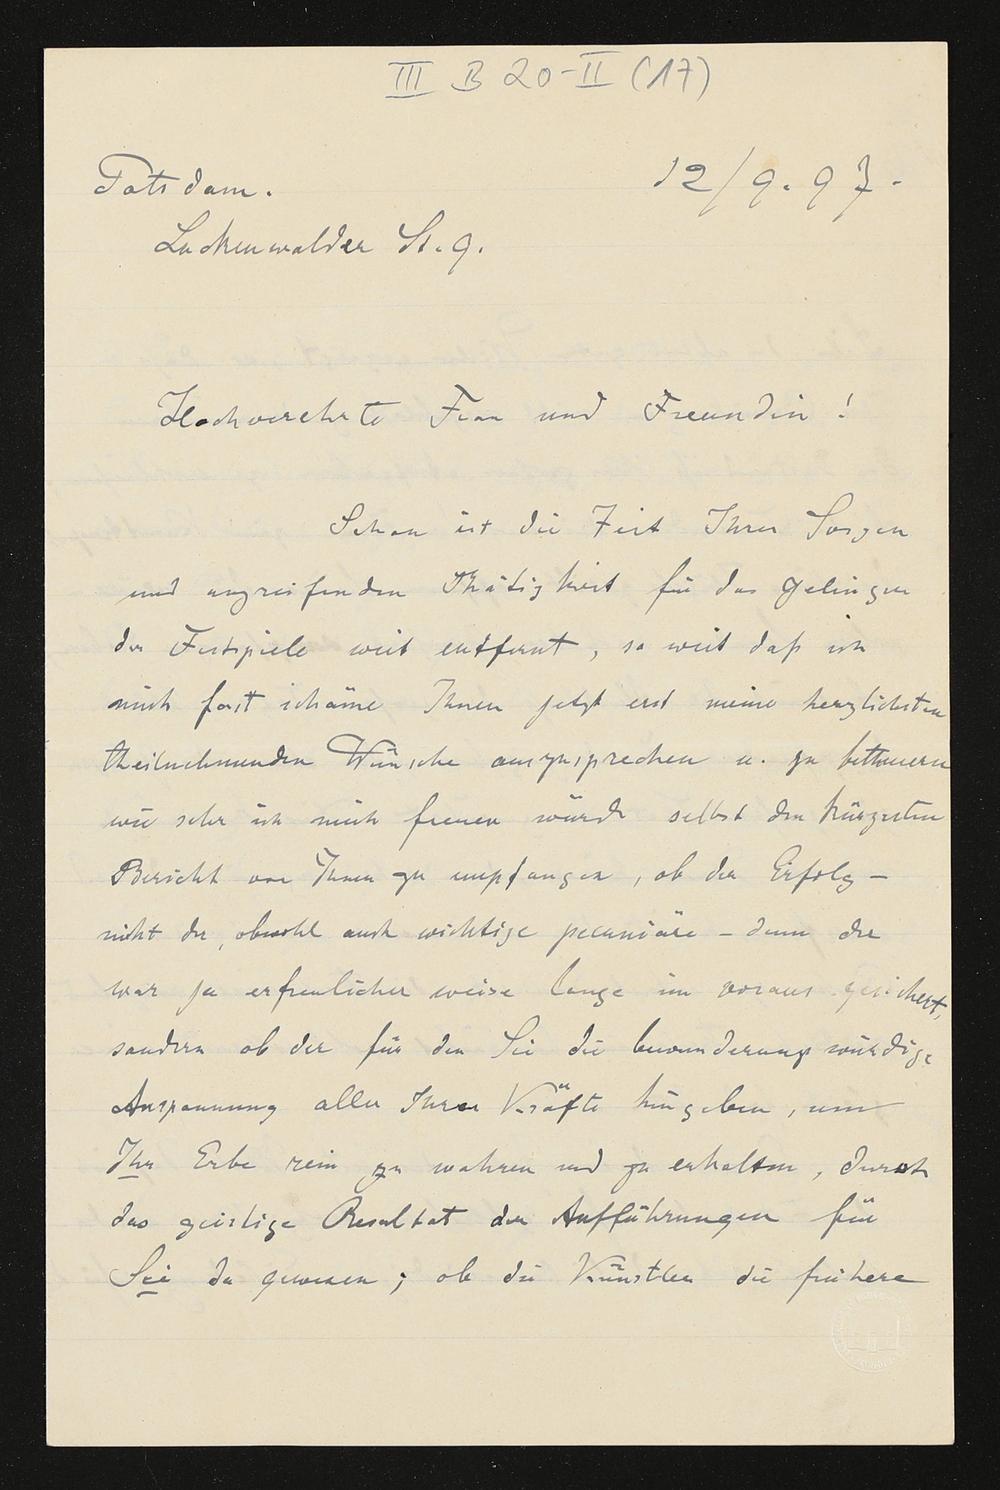 III B 20-II (17)
Potsdam.
12/9. 97.
Luckenwalder St. 9.
Hochverehrte Frau und Freundin!
Schon ist die Zeit Ihrer Sorgen
und angreifenden Thätigkeit für das Gelingen
der Festspiele weit entfernt, so weit daß ich
mich fast schäme Ihnen jetzt erst meine herzlichsten
theilnehmenden Wünsche auszusprechen u. zu betheuern
wie sehr ich mich freuen würde selbst den kürzesten
Bericht von Ihnen zu empfangen, ob der Erfolg –
nicht der, obwohl auch wichtige pecuniäre – denn der
war ja erfreulicher weise lange im voraus gesichert,
sondern ob der für den Sie die bewunderungswürdige
Anspannung aller Ihrer Kräfte hingeben, um
Ihr Erbe rein zu wahren und zu erhalten, durch
das geistige Resultat der Aufführungen für
Sie da gewesen; ob die Künstler die frühere